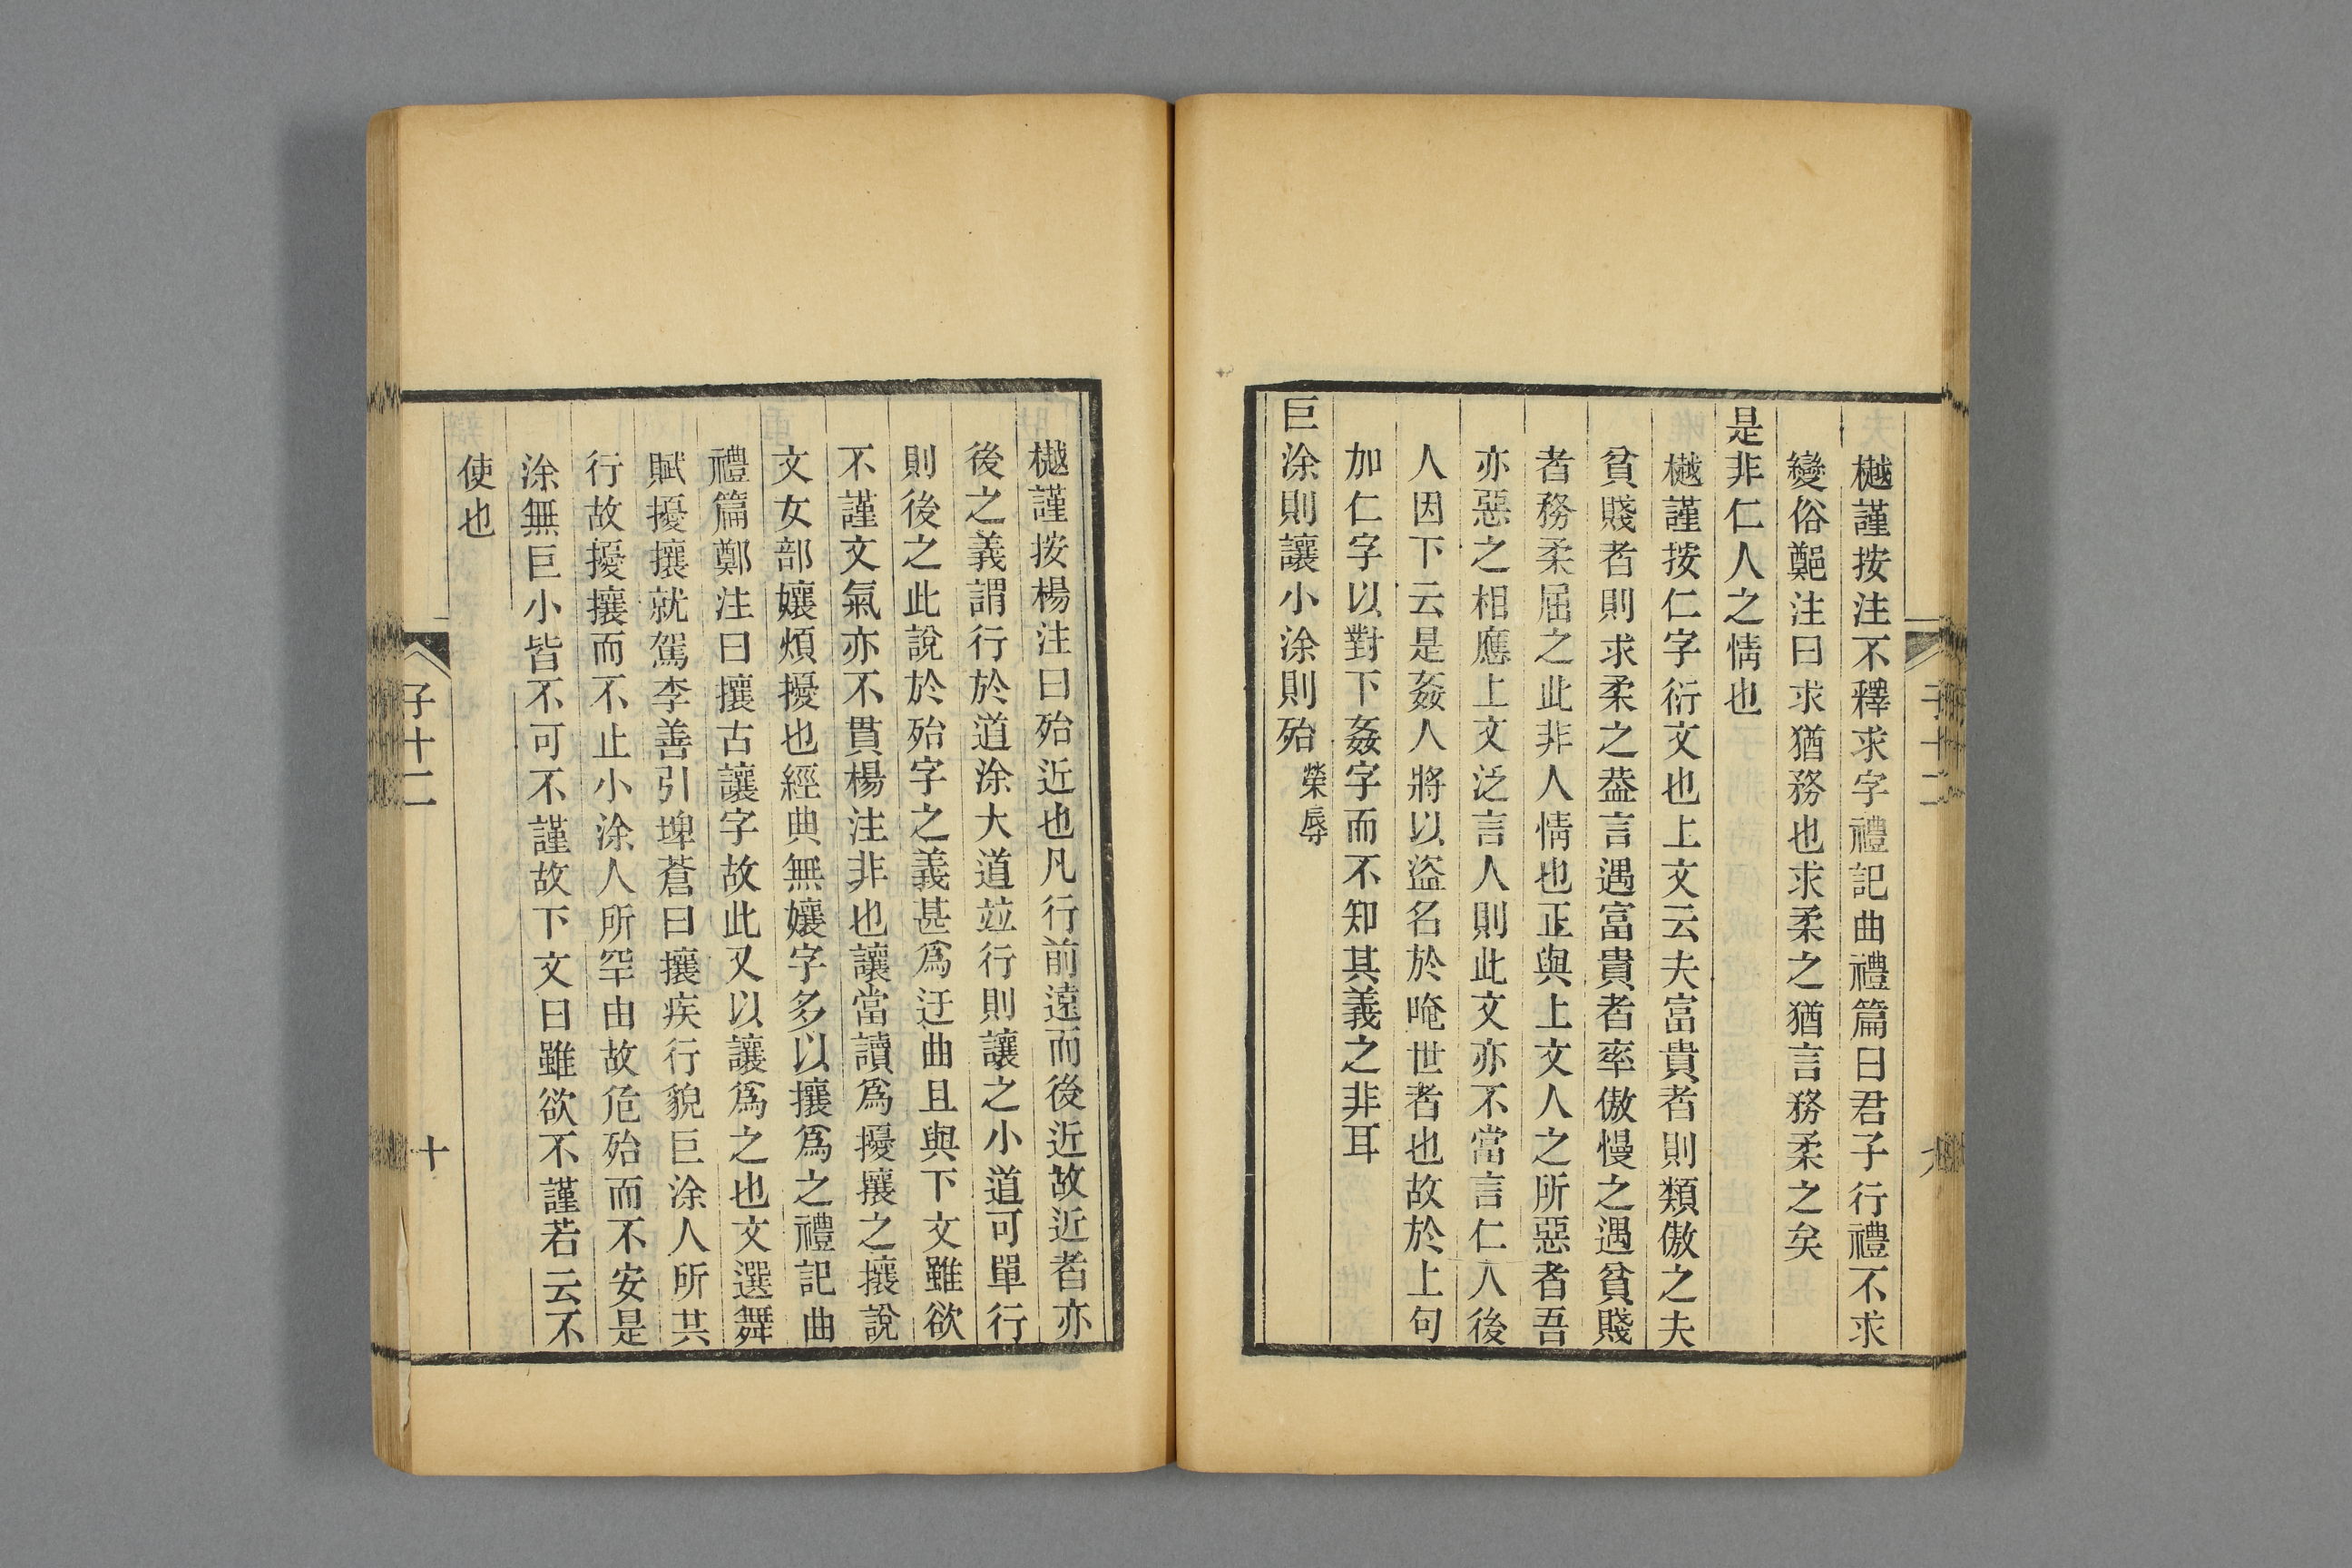 樾謹按注不釋求字禮記曲禮篇曰君子行禮不求
變俗鄭注曰求猶務也求柔之猶言務柔之矣
是非仁人之情也
樾謹按仁字衍文也上文云夫富貴者則類傲之夫
貧賤者則求柔之葢言遇富貴者率傲慢之遇貧賤
者務柔屈之此非人情也正與上文人之所惡者吾
亦惡之相應上文泛言人則此文亦不當言仁人後
人因下云是姦人將以盜名於晻世者也故於上句
加仁字以對下姦字而不知其義之非耳
巨涂則讓小涂則殆榮辱
樾謹按楊注曰殆近也凡行前遠而後近故近者亦
後之義謂行於道涂大道竝行則讓之小道可單行
則後之此說於殆字之義甚爲迂曲且與下文雖欲
不謹文氣亦不貫楊注非也讓當讀爲擾攘之攘說
文女部孃煩擾也經典無孃字多以攘爲之禮記曲
禮篇鄭注曰攘古讓字故此又以讓爲之也文選舞
賦擾攘就駕李善引埤蒼曰攘疾行貌巨涂人所共
行故擾攘而不止小涂人所罕由故危殆而不安是
涂無巨小皆不可不謹故下文曰雖欲不謹若云不
使也
子十二
十